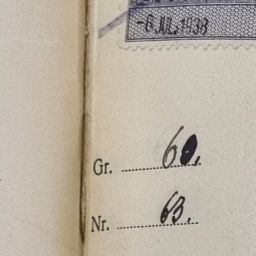 -6 JUL. 1938
Gr. 60.
Nr. 63.